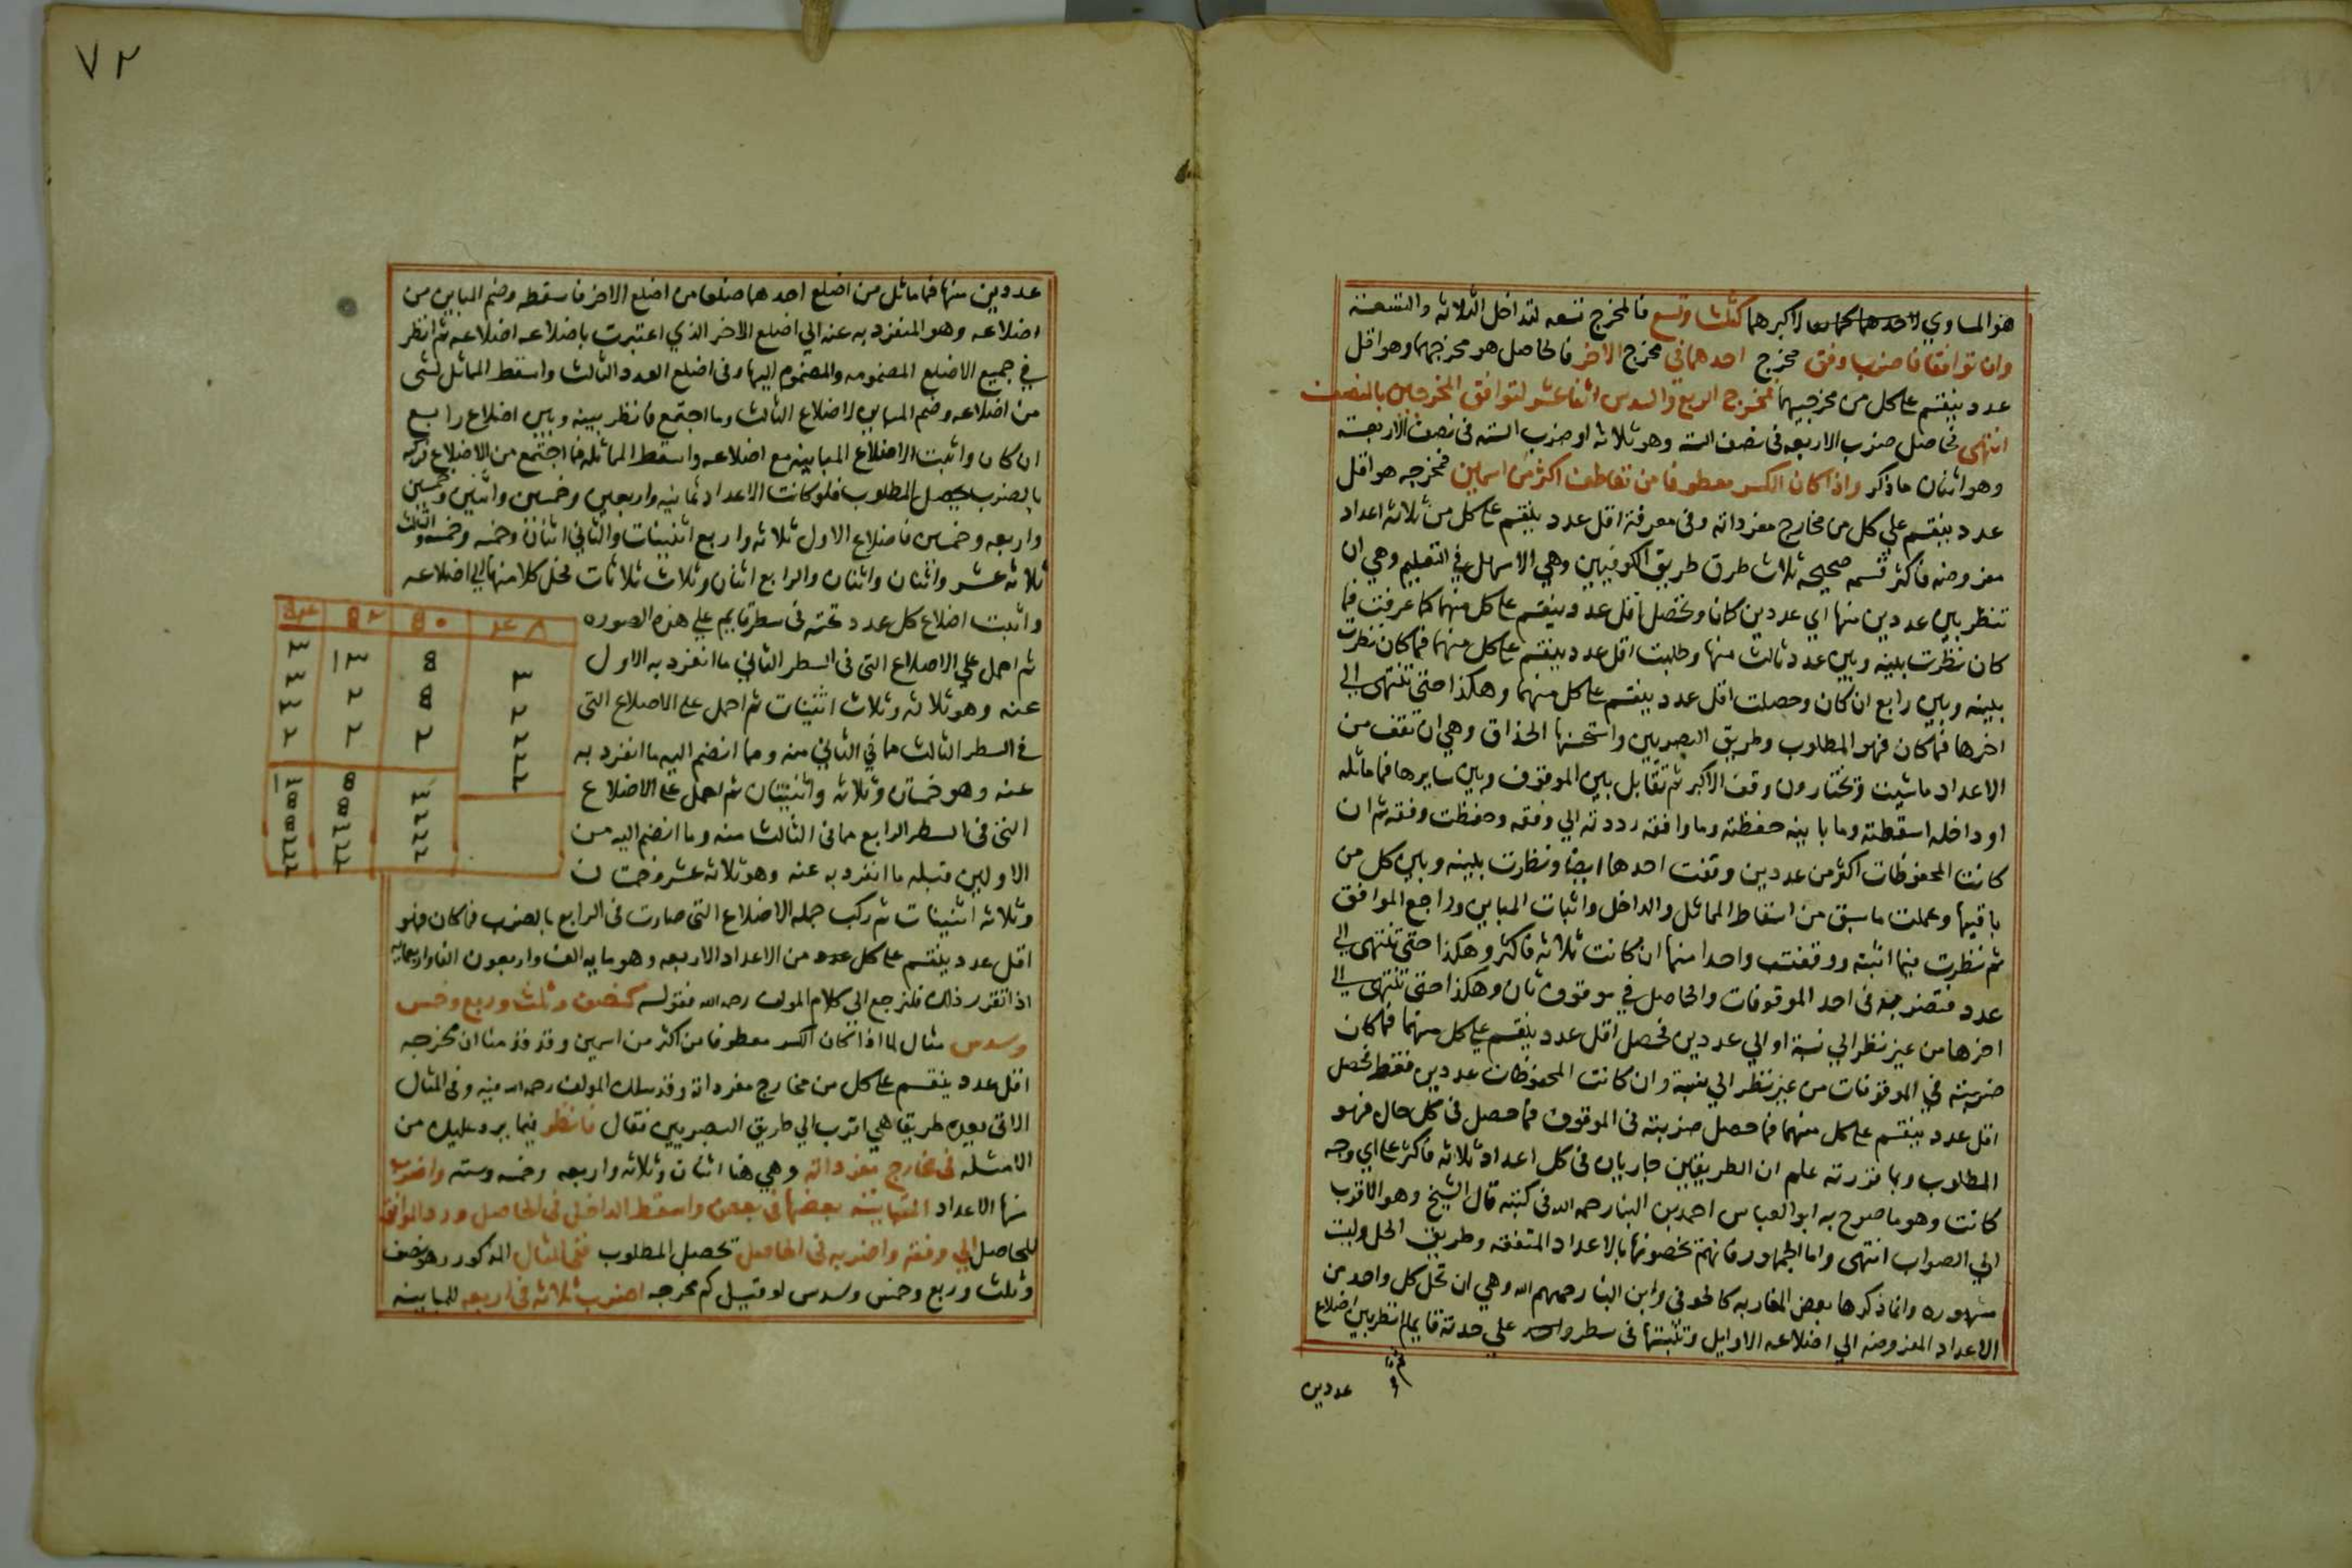 هو المساوي لاكبرهما كثلث وتسع فالمخرج تسعه لتداخل الثلاثه والتسعة
وان توافقا فاضرب وفق مخرج احدهما في مخرج الاخر فالحاصل هو مخرجهما وهو اقل
عدد ينقسم على كل من مخرجيهما فمخرج الربع والسدس اثنا عشر لتوافق المخرجين بالنصف
انتهى فحاصل ضرب الاربعه في نصف السته وهو ثلاثه او ضرب السته في نصف الاربعة
وهو اثنان ماذكر واذا كان الكسر معطوفا من تعاطف اكثر من اسمين فمخرجه هو اقل
عدد ينقسم علي كل من مخارج مفرداته وفي معرفة اقل عدد ينقسم على كل من ثلاثه اعداد
مفروضه فاكثر قسمه صحيحه ثلاث طرق طريق الكوفيين وهي الاسهل في التعليم وهي ان
تنظر بين عددين منها اي عددين كانا وتحصل اقل عدد ينقسم على كل منهما كما عرفت فما
كان نظرت بينه وبين عدد ثالث منها وطلبت اقل عدد ينقسم على كل منهما فما كان نظرت
بينه وبين رابع ان كان وحصلت اقل عدد ينقسم على كل منهما وهكذا حتى تنتهى الي
اخرها فما كان فهو المطلوب وطريق البصريين واستحسنها الحذاق وهي ان تقف من
الاعداد ماشيت ويختارون وقف الاكبر ثم تقابل بين الموقوف وبين سايرها فما ماثله
او داخله اسقطته وما باينه حفظته وما وافقه رددته الي وفقه وحفظت وفقه ثم ان
كانت المحفوظات اكثر من عددين وقفت احدها ايضا ونظرت بينه وبين كل من
باقيها وعملت ماسبق من اسقاط المماثل والداخل واثبات المباين وراجع الموافق
ثم نظرت فيما اثبته ووقفت واحدا منها ان كانت ثلاثه فاكثر وهكذا حتى تنتهى الي
عدد فتضربه في احد الموقوفات والحاصل في موقوف ثان وهكذا حتى تنتهى الي
اخرها من غير نظر الي نسبة او الي عددين فحصل اقل عدد ينقسم على كل منهما فما كان
ضربته في الموقوفات من غير نظر الي نسبة وان كانت المحفوظات عددين فقط فحصل
اقل عدد ينقسم على كل منهما فما حصل ضربته في الموقوف فما حصل في كل حال فهو
المطلوب وبما قررته علم ان الطريقين جاريان في كل اعداد ثلاثه فاكثر على اي وجه
كانت وهو ما صرح به ابو العباس احمد بن البنا رحمه الله في كتبه قال الشيخ وهو الاقرب
الي الصواب انتهى واما الجمهور فانهم يخصونها بالاعداد المتفقه وطريق الحل وليست
مشهوره وانما ذكرها بعض المغاربه كالحوفي وابن البنا رحمهم الله وهي ان تحل كل واحد من
الاعداد المفروضه الي اضلاعه الاوايل وتثبتها في سطر علي حدته قايما ثم انظر بين اضلاع
عددين
٧٢
عددين منها فما ماثل من اضلع احدهما ضلعا من اضلع الاخر فاسقطه وضم المباين من
اضلاعه وهو المنفرد به عنه الي اضلع الاخر الذي اعتبرت باضلاعه اضلاعه ثم انظر
في جميع الاضلع المضمومه والمضموم اليها وفي اضلع العدد الثالث واسقط المماثل لشى
من اضلاعه وضم المباين لاضلاع الثالث وما اجتمع فانظر بينه وبين اضلاع رابع
ان كان واثبت الاضلاع المباينه مع اضلاعه واسقط المماثله فما اجتمع من الاضلاع فركبه
بالضرب يحصل المطلوب فلو كانت الاعداد ثمانيه واربعين وخمسين واثنين وخمسين
واربعه وخمسين فاضلاع الاول ثلاثه واربع اثنينات والثاني اثنان وخمسه وخمسه والثالث
ثلاثه عشر واثنان واثنان والرابع اثنان وثلاث ثلاثات فحل كلا منها الي اضلاعه
واثبت اضلاع كل عدد تحته في سطر قايم علي هذه الصوره
ثم احمل علي الاضلاع التي في السطر الثاني ما انفرد به الاول
عنه وهو ثلاثه وثلاث اثنينات ثم احمل على الاضلاع التي
في السطر الثالث ما في الثاني منه وما انضم اليه ما انفرد به
عنه وهو خمستان وثلاثه واثنينان ثم احمل على الاضلاع
التي في السطر الرابع ما في الثالث منه وما انضم اليه من
الاولين قبله ما انفرد به عنه وهو ثلاثه عشر وخمستان
وثلاثه اثنينات ثم ركب جمله الاضلاع التي صارت في الرابع بالضرب فما كان فهو
اقل عدد ينقسم على كل عدد من الاعداد الاربعه وهو مايه الف واربعون الفا واربعمايه
اذا تقرر ذلك فلنرجع الى كلام المولف رحمه الله فقوله كنصف وثلث وربع وخمس
وسدس مثال لما اذا كان الكسر معطوفا من اكثر من اسمين وقد قدمنا ان مخرجه
اقل عدد ينقسم على كل من مخارج مفرداته وقد سلك المولف رحمه الله فيه وفي المثال
الاتي بعده طريقا هي اقرب الي طريق البصريين فقال فانظر فيما يرد عليك من
الامثله في مخارج مفرداته وهي هنا اثنان وثلاثه واربعه وخمسه وسته واضرب
منها الاعداد المتباينه بعضها في بعض واسقط الداخل في الحاصل ورد الموافق
للحاصل الي وفقه واضربه في الحاصل تحصل المطلوب ففي المثال المذكور وهو نصف
وثلث وربع وخمس وسدس لو قيل كم مخرجه اضرب ثلاثه في اربعه للمباينه